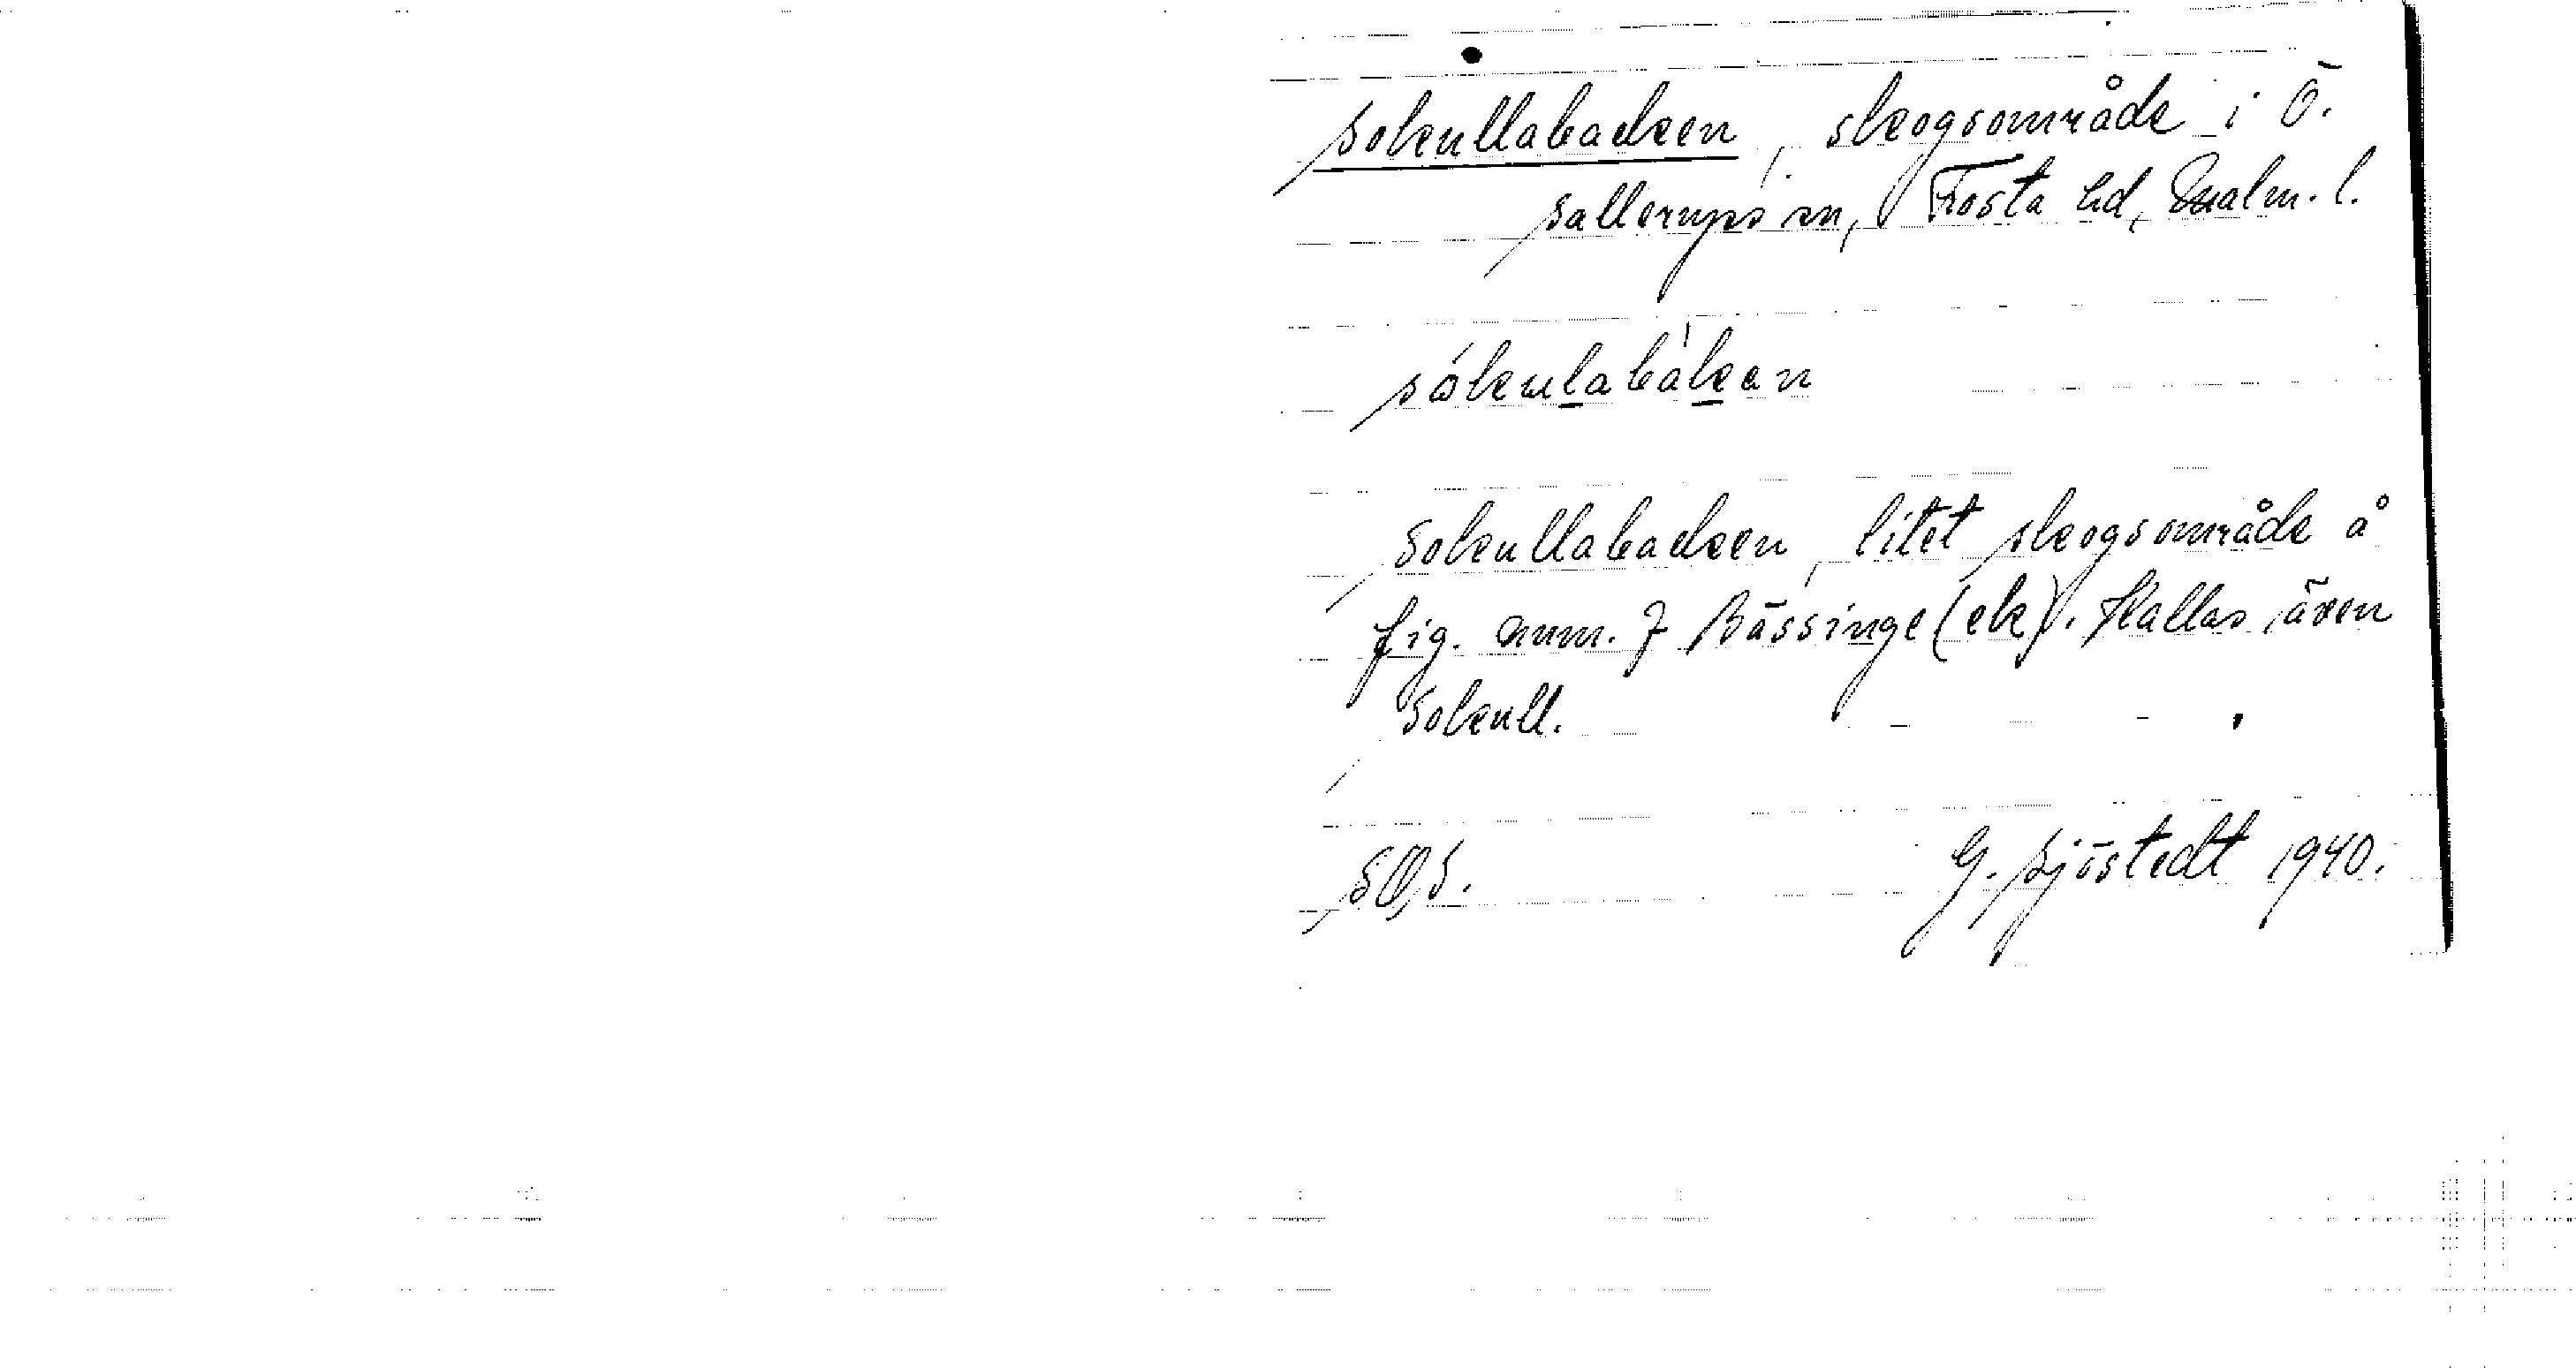 Sokullabacken, skogsområde i Ö.
Sallerups sn, Frosta hd, Malm. l.
sókulabàkan
Sokullabacken, litet skogsområde å
fig. num. 7 Bässinge (ek). Kallas även
Sokull.
G. Sjöstedt 1940.